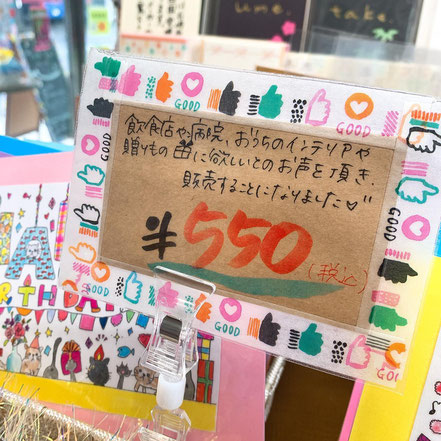 ume.
take.
GOOD
飲食店や病院、おうちのインテリアや
贈りもの🎁に欲しいとのお声を頂き、
販売することになりました♡"
¥550
(税込)
GOOD
GOOD
GOOD
GOOD
GOOD